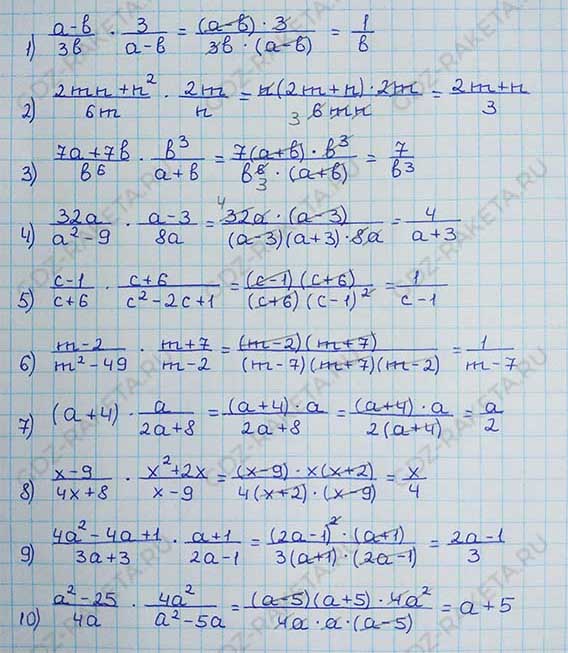 1) (a-b)/(3b) · 3/(a-b) = ((a-b) · 3)/(3b · (a-b)) = 1/b
2) (2mn + n²)/(6m) · (2m)/n = (n(2m+n) · 2m)/(3 6mn) = (2m+n)/3
3) (7a+7b)/b⁶ · b³/(a+b) = (7(a+b) · b³)/(b⁶ 3 · (a+b)) = 7/b³
4) (32a)/(a²-9) · (a-3)/(8a) = (4 32a · (a-3))/((a-3)(a+3) · 8a) = 4/(a+3)
5) (c-1)/(c+6) · (c+6)/(c²-2c+1) = ((c-1)(c+6))/((c+6)(c-1)²) = 1/(c-1)
6) (m-2)/(m²-49) · (m+7)/(m-2) = ((m-2)(m+7))/((m-7)(m+7)(m-2)) = 1/(m-7)
7) (a+4) · a/(2a+8) = ((a+4) · a)/(2a+8) = ((a+4) · a)/(2(a+4)) = a/2
8) (x-9)/(4x+8) · (x²+2x)/(x-9) = ((x-9) · x(x+2))/(4(x+2) · (x-9)) = x/4
9) (4a²-4a+1)/(3a+3) · (a+1)/(2a-1) = ((2a-1)² · (a+1))/(3(a+1) · (2a-1)) = (2a-1)/3
10) (a²-25)/(4a) · (4a²)/(a²-5a) = ((a-5)(a+5) · 4a²)/(4a · a · (a-5)) = a+5
GDZ-RAKETA.RU